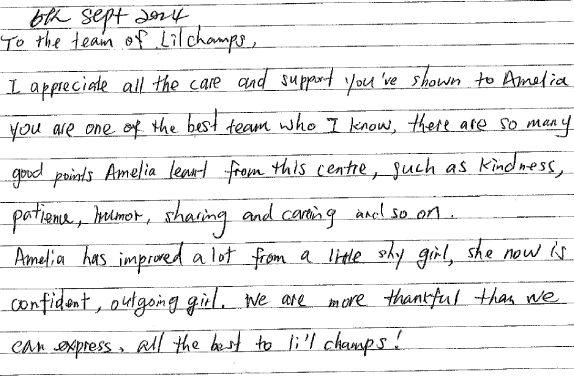 6th Sept 2024
To the team of Lil champs,
I appreciate all the care and support you've shown to Amelia
you are one of the best team who I know, there are so many
good points Amelia learnt from this centre, such as kindness,
patience, humor, sharing and caring and so on.
Amelia has improved a lot from a little shy girl, she now is
confident, outgoing girl. We are more thankful than we
can express. all the best to li'l champs!